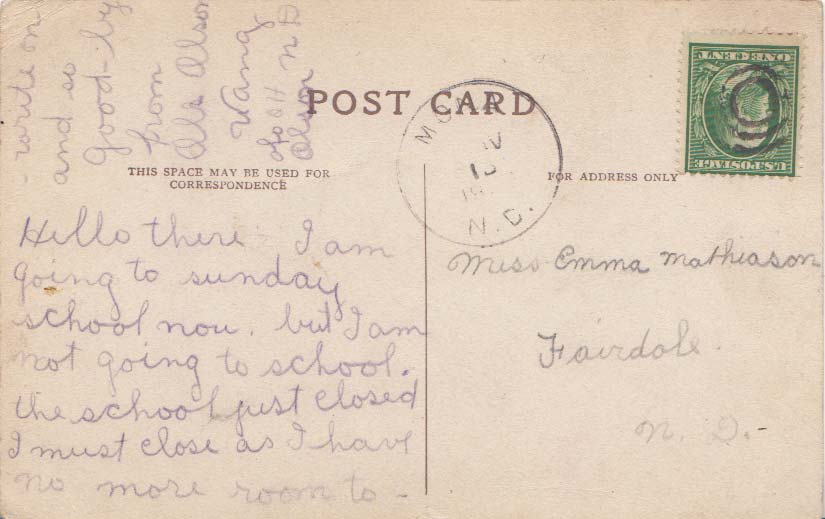 POST CARD
THIS SPACE MAY BE USED FOR
CORRESPONDENCE
FOR ADDRESS ONLY
N.D.
U.S. POSTAGE
ONE CENT
Hello there I am
going to sunday
school nou. but I am
not going to school.
the school just closed
I must close as I have
no more room to -
- write on
and so
good-by
from
Ole Olson
Wang
N D
Olson
Miss Emma Mathiason
Fairdale.
N. D.-